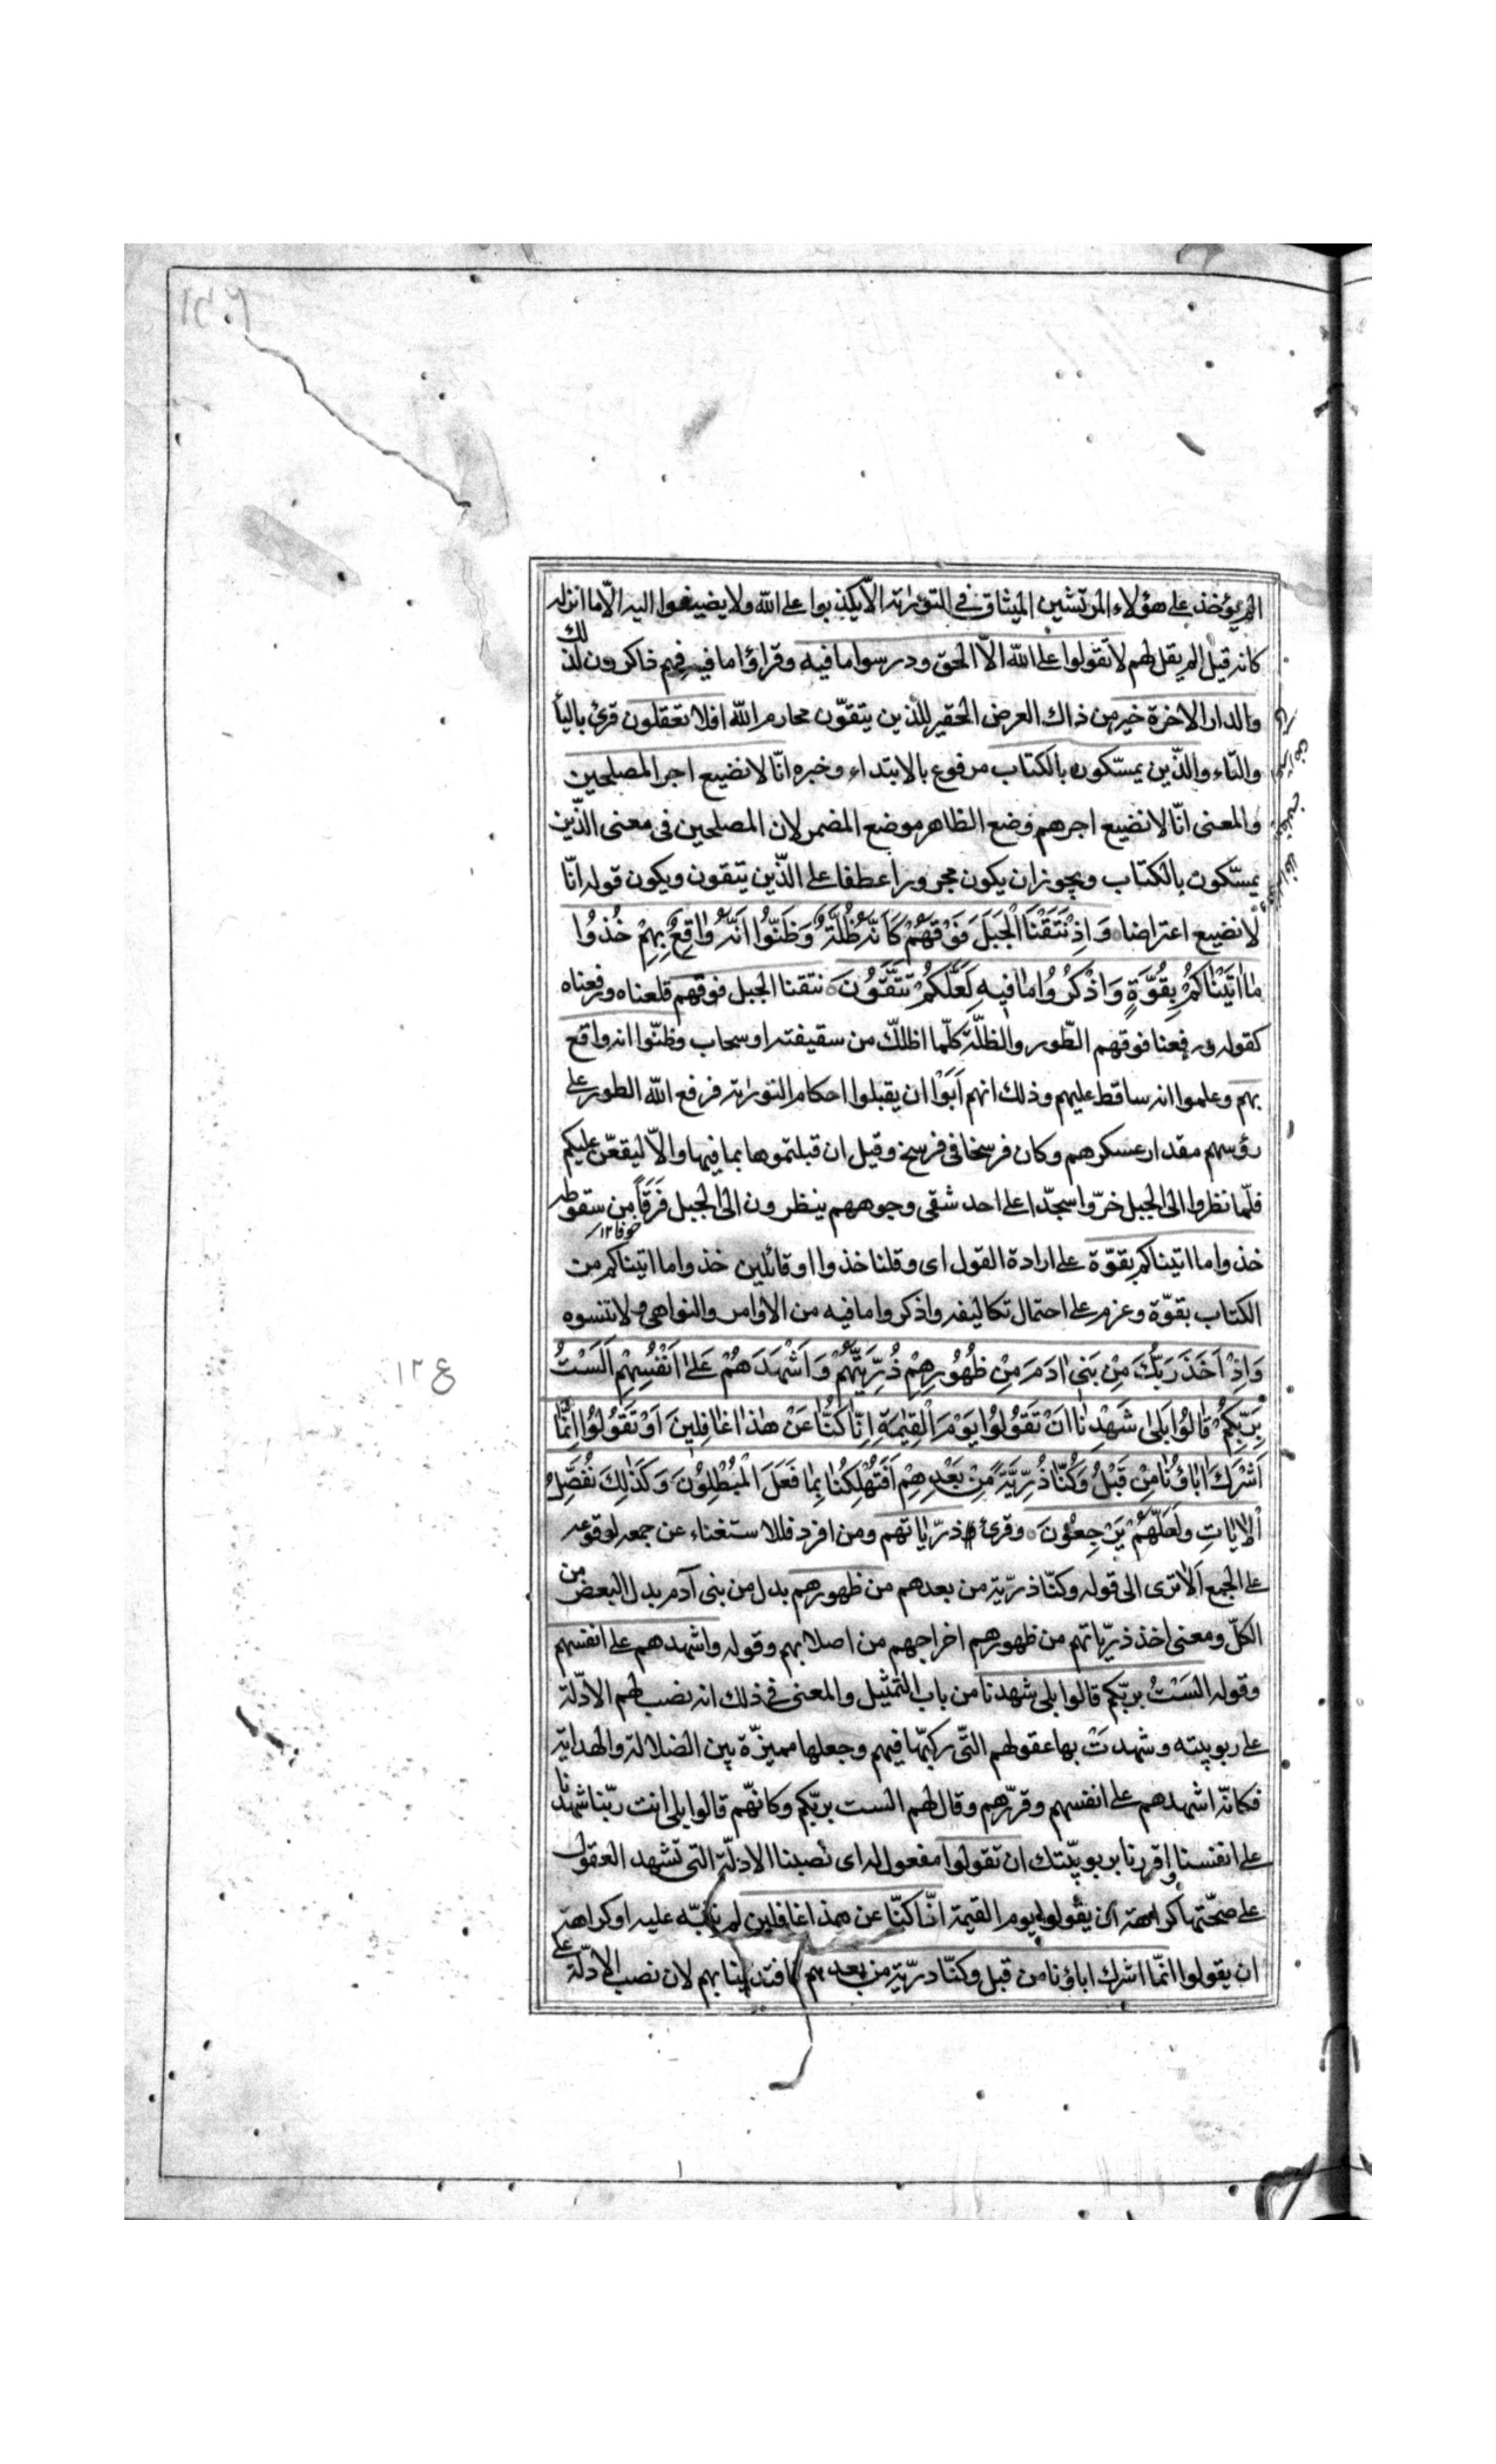 الم يؤخذ على هؤلاء المرتشين الميثاق في التورٰية الّا يكذبوا على الله ولا يضيفوا اليه الّا ما انزله
كانه قيل الم يقل لهم لا تقولوا على الله الّا الحق ودرسوا ما فيه وقراؤا ما فيه فهم ذاكرون لذلك
والدار الاخرة خير من ذاك العرض الحقير للذين يتقوّن محارم الله افلا تعقلون قرئ بالياأ
والتاء والذّين يمسّكون بالكتاب مرفوع بالابتداء وخبره انّا لا نضيع اجر المصلحين
والمعنى انّا لا نضيع اجرهم فوضع الظاهر موضع المضمر لان المصلحين فى معنى الذّين
يمسّكون بالكتاب ويجوز ان يكون مجرورا عطفا على الذّين يتقون ويكون قوله انّا
لا نضيع اعتراضا وَاِذْ نَتَقْنَا الْجَبَلَ فَوْقَهُمْ كَاَنَّهُ ظُلَّةٌ وَظَنّوُا اَنَّهُ وٰاقِعٌ بِهِمْ خُذوُا
مٰا اٰتَيْنٰاكُمْ بِقُوَّةٍ وَاذْكُرُوُا مٰا فيهِ لَعَلَّكُمْ تَتَّقُونَ نتقنا الجبل فوقهم قلعناه ورفعناه
كقوله ورفعنا فوقهم الطّور والظلّة كلّما اظلّك من سقيفته او سحاب وظنّوا انه واقع
بهم وعلموا انه ساقط عليهم وذلك انهم اَبَوْا ان يقبلوا احكام التورٰية فرفع الله الطور على
رؤسهم مقدار عسكرهم وكان فرسخا فى فرسخ وقيل ان قبلتموها بما فيها والّا ليقعنّ عليكم
فلّما نظروا الى الجبل خرّوا سجدّا على احد شقى وجوههم ينظرون الى الجبل فَرَقاً من سقوطه
خوفا ١٢
خذوا ما اتيناكم بقوّة على ارادة القول اى وقلنا خذوا او قائلين خذوا ما اتيناكم من
الكتاب بقوّة وعزم على احتمال تكاليفه واذكروا ما فيه من الاوامر والنواهى ولا تنسوه
وَاِذْ اَخَذَ رَبُّكَ مِنْ بَنى اٰدَمَ مِنْ ظُهُورِهِمْ ذُرِّيَّتَهُمْ وَاَشْهَدَهُمْ عَلىٰ اَنْفُسِهِمْ اَلَسْتُ
بِرَبِّكُمْ قٰالُوا بَلىٰ شَهِدْنٰا اَنْ تَقُولُوا يَوْمَ الْقِيٰمَةِ اِنّٰا كُنّٰا عَنْ هٰذٰا غٰافِلينَ اَوْ تَقُولُوا اِنَّمٰا
اَشْرَكَ اٰبٰاؤُنٰا مِنْ قَبْلُ وَكُنّٰا ذُرِّيَّةً مِنْ بَعْدِهِمْ اَفَتُهْلِكُنٰا بِمٰا فَعَلَ الْمُبْطِلُونَ وَكَذٰلِكَ نُفَصِّلُ
الْاٰيٰاتِ وَلَعَلَّهُمْ يَرْجِعُونَ وقرئ ذرّياتهم ومن افرد فللاستغناء عن جمعه لوقوعه
على الجمع اَلاٰ ترى الى قوله وكنّا ذرّية من بعدهم من ظهورهم بدل من بنى آدم بدل البعض من
الكلّ ومعنى اخذ ذريّاتهم من ظهورهم اخراجهم من اصلابهم وقوله واشهدهم على انفسهم
وقوله السَتُ بربّكم قالوا بلى شهدنا من باب التمثيل والمعنى فى ذلك انه نصب لهم الادّلة
على ربوبيته وشهدتْ بها عقولهم التّى ركبّها فيهم وجعلها مميزّة بين الضلالة والهداية
فكانّه اشهدهم على انفسهم وقررّهم وقال لهم الست بربّكم وكانّهم قالوا بلى انت ربّنا شهدنا
على انفسنا واقررنا بربوبيّتك ان تقولوا مفعول له اى نصبنا الادلّة التى تشهد العقول
على صحّتها كراهة ان يقولوا يوم القيمة انّا كنّا عن هذا غافلين لم ننبّه عليه او كراهة
ان يقولوا انّما اشرك اباؤنا من قبل وكنّا ذرّية من بعدهم فاقتدينا بهم لان نصب الادلّة على
١٢ع